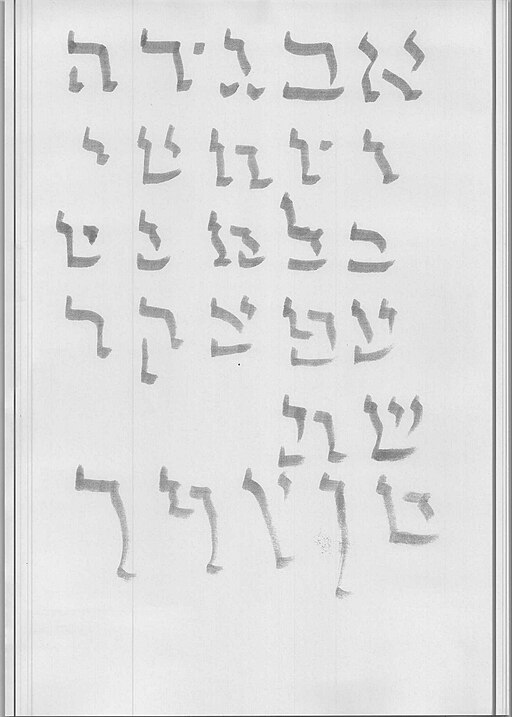 א ב ג ד ה
ו ז ח ט י
כ ל מ נ ס
ע פ צ ק ר
ש ת
ם ן ץ ף ך